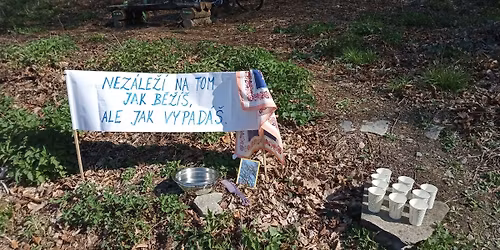 NEZÁLEŽÍ NA TOM
JAK BĚŽÍŠ,
ALE JAK VYPADÁŠ.